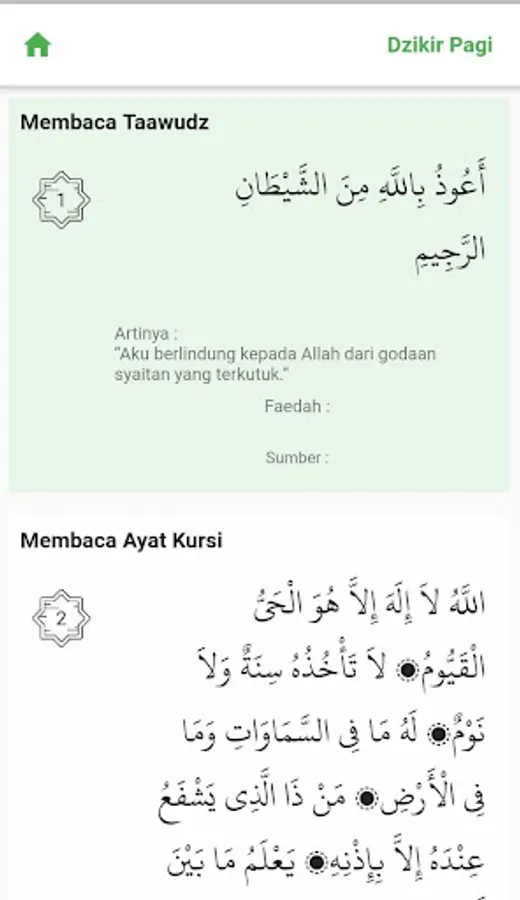 Dzikir Pagi
Membaca Taawudz
1
أَعُوذُ بِاللَّهِ مِنَ الشَّيْطَانِ
الرَّجِيمِ
Artinya :
"Aku berlindung kepada Allah dari godaan
syaitan yang terkutuk."
Faedah :
Sumber :
Membaca Ayat Kursi
2
اللَّهُ لاَ إِلَهَ إِلاَّ هُوَ الْحَىُّ
الْقَيُّومُ لاَ تَأْخُذُهُ سِنَةٌ وَلاَ
نَوْمٌ لَهُ مَا فِى السَّمَاوَاتِ وَمَا
فِى الْأَرْضِ مَنْ ذَا الَّذِى يَشْفَعُ
عِنْدَهُ إِلاَّ بِإِذْنِهِ يَعْلَمُ مَا بَيْنَ